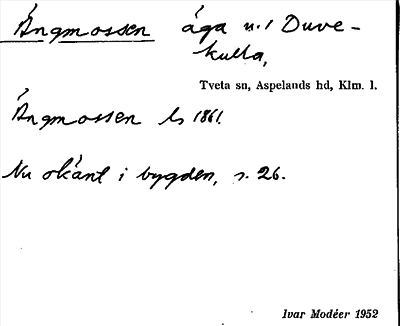 Ängmossen äga u. / Duve-
kulla,
Tveta sn, Aspelands hd, Klm. l.
Ängmossen ls 1861.
Nu okänt i bygden, s. 26.
Ivar Modéer 1952